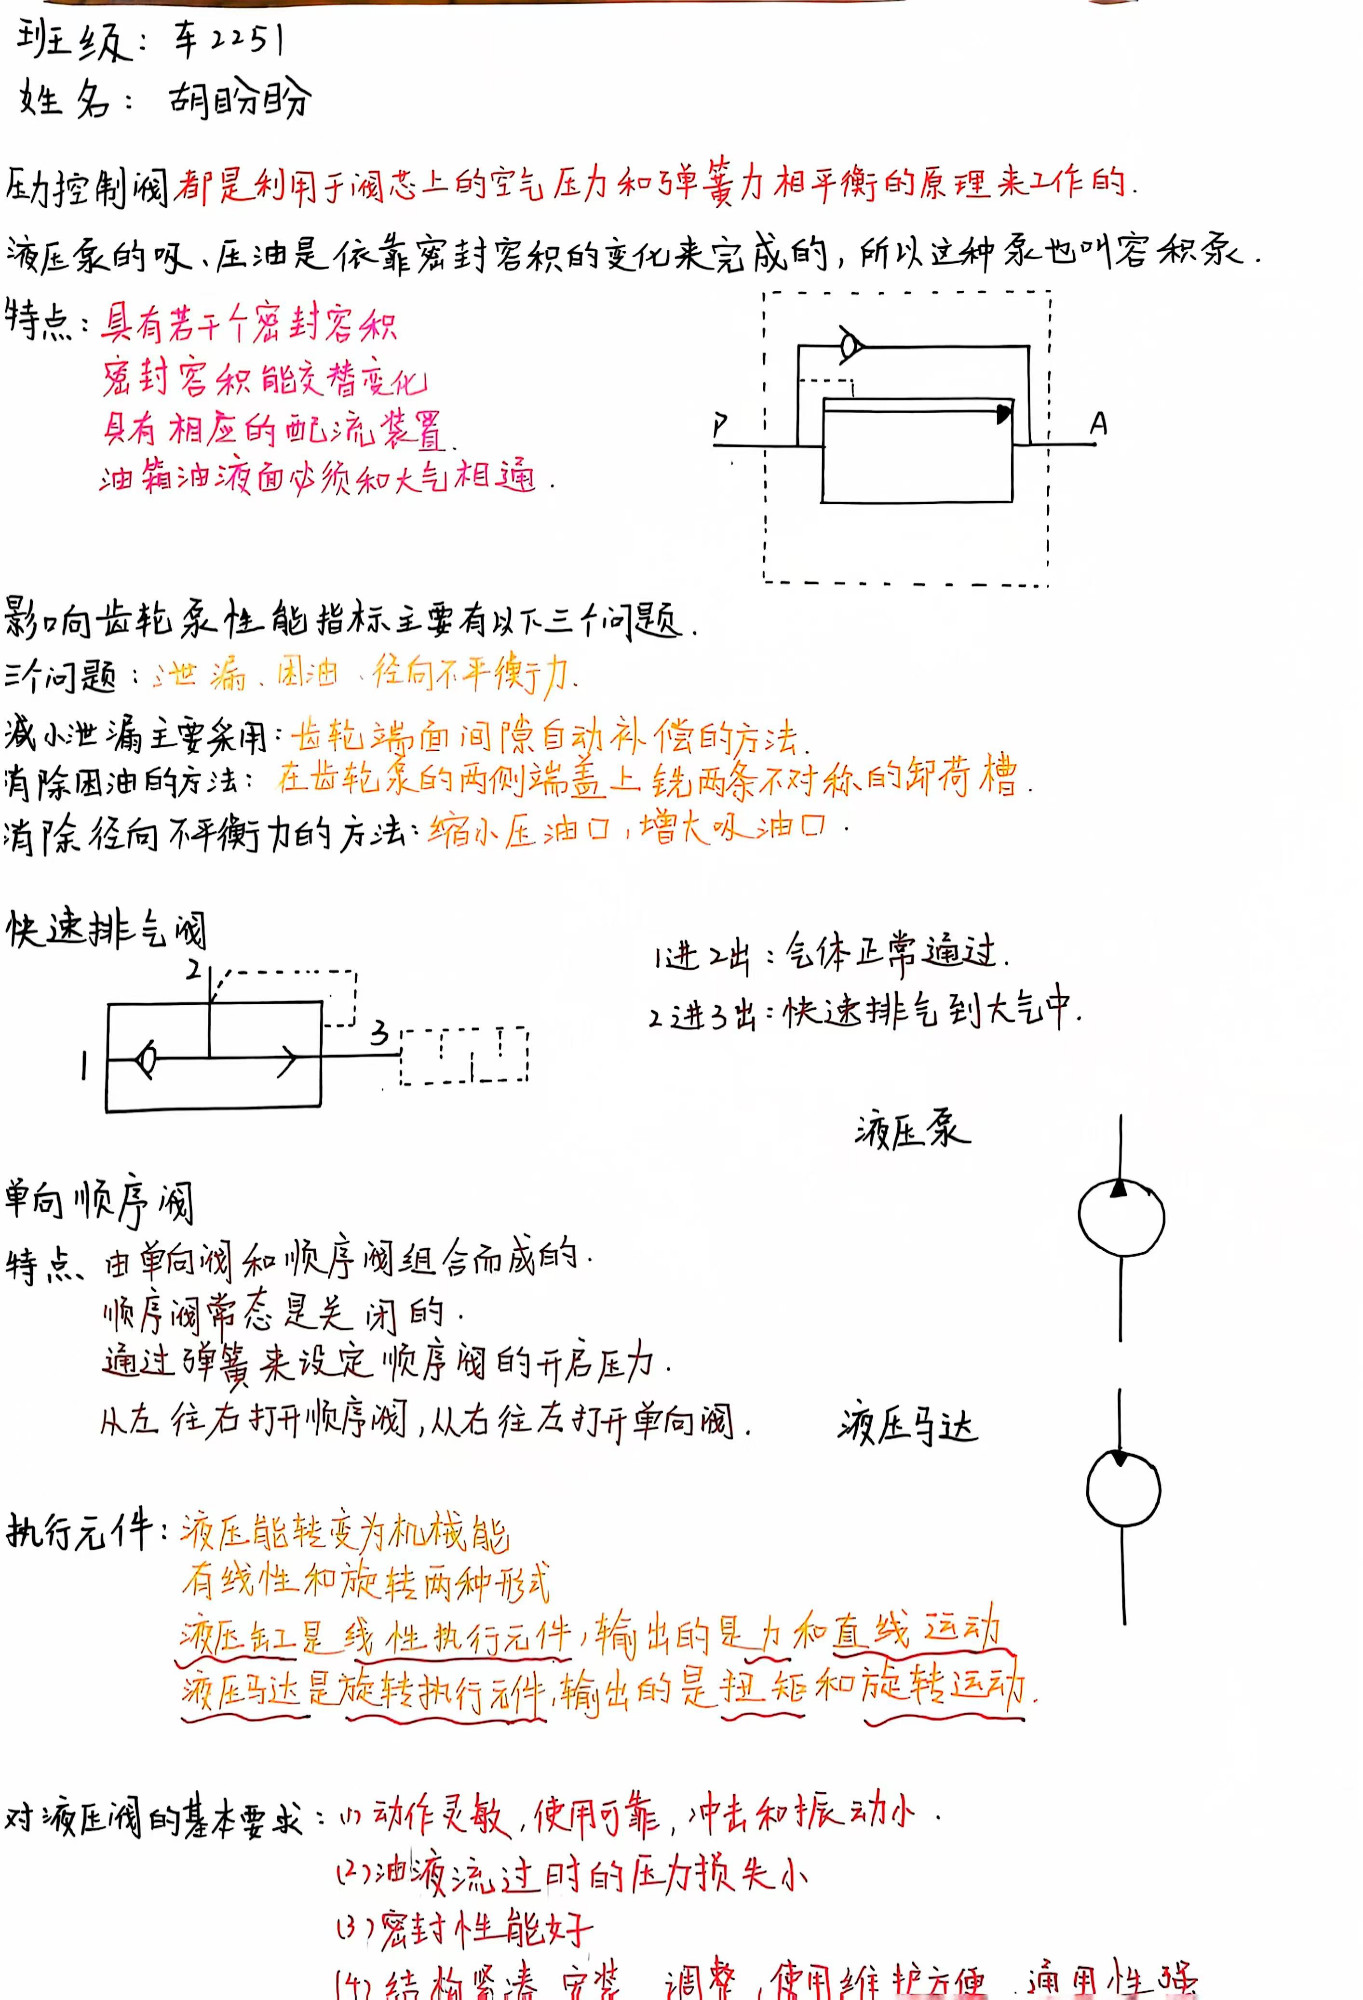 班级：车2251
姓名：胡盼盼
压力控制阀都是利用于阀芯上的空气压力和弹簧力相平衡的原理来工作的.
液压泵的吸、压油是依靠密封容积的变化来完成的，所以这种泵也叫容积泵.
特点：具有若干个密封容积
密封容积能交替变化
具有相应的配流装置.
油箱油液面必须和大气相通.
P
A
影响齿轮泵性能指标主要有以下三个问题.
三个问题：泄漏、困油、径向不平衡力.
减小泄漏主要采用：齿轮端面间隙自动补偿的方法.
消除困油的方法：在齿轮泵的两侧端盖上铣两条不对称的卸荷槽.
消除径向不平衡力的方法：缩小压油口，增大吸油口.
快速排气阀
1进2出：气体正常通过.
2进3出：快速排气到大气中.
2
3
1
液压泵
单向顺序阀
特点、由单向阀和顺序阀组合而成的.
顺序阀常态是关闭的.
通过弹簧来设定顺序阀的开启压力.
从左往右打开顺序阀，从右往左打开单向阀.
液压马达
执行元件：液压能转变为机械能
有线性和旋转两种形式
液压缸是线性执行元件，输出的是力和直线运动
液压马达是旋转执行元件，输出的是扭矩和旋转运动.
对液压阀的基本要求：(1)动作灵敏，使用可靠，冲击和振动小.
(2)油液流过时的压力损失小
(3)密封性能好
(4)结构紧凑 安装、调整，使用维护方便、通用性强